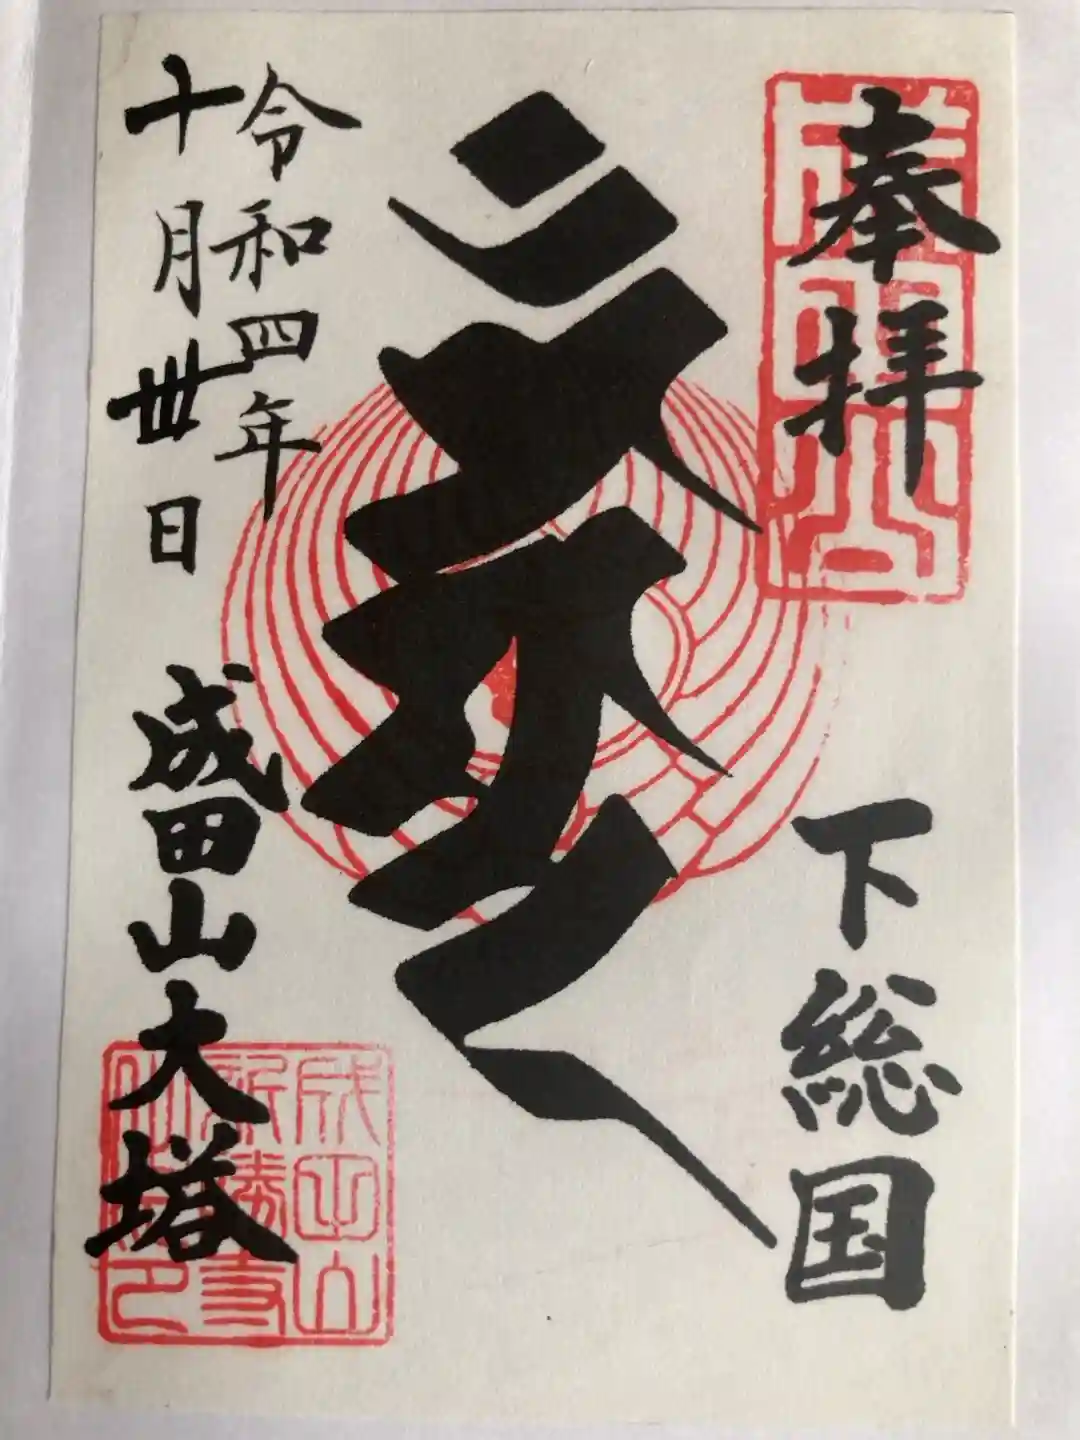 奉拝
下総国
令和四年
十月卅日
成田山大塔
成田山
成田山
新勝寺